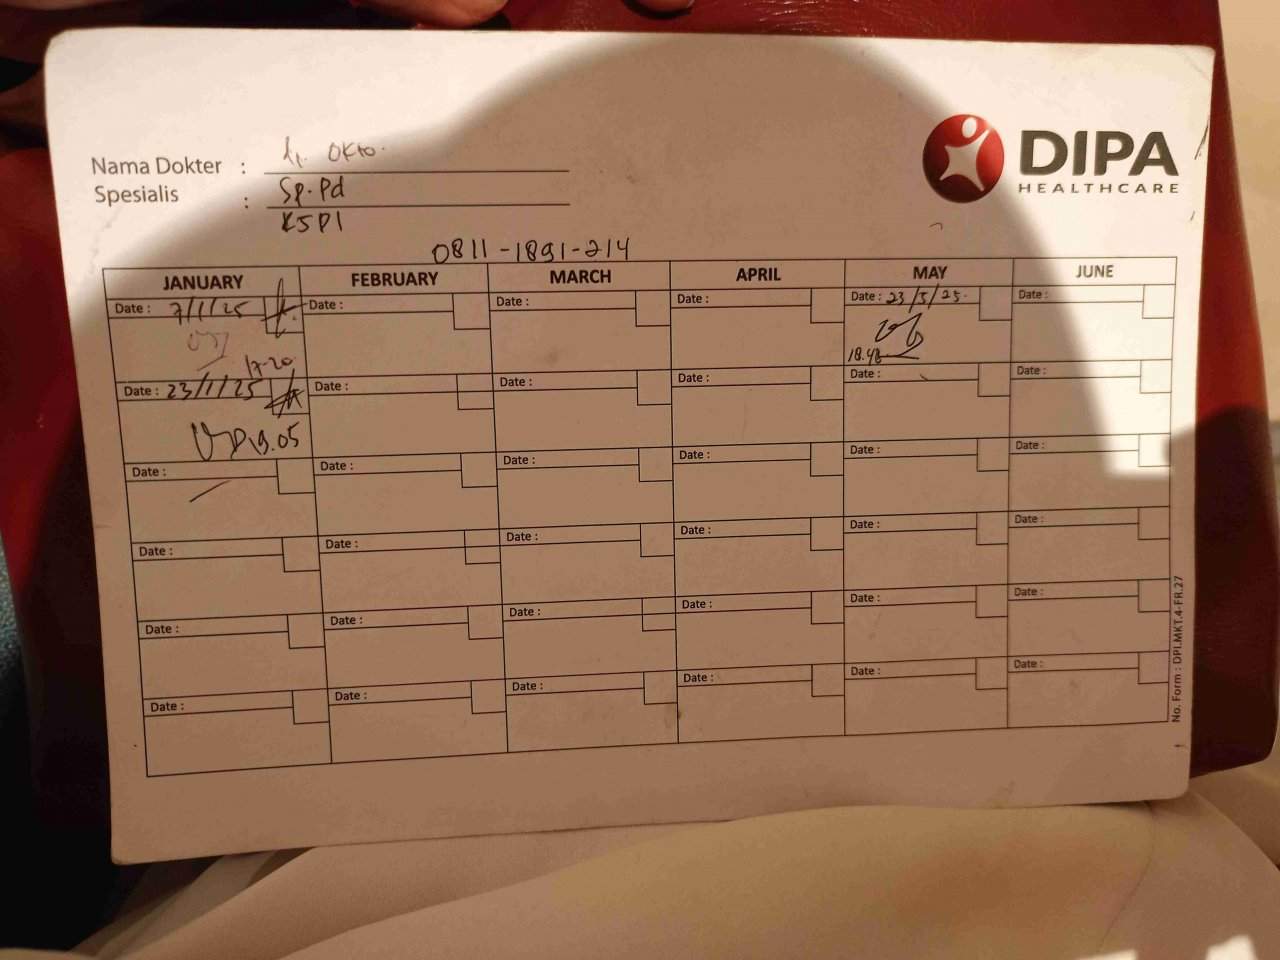 Nama Dokter : dr. Okto.
Spesialis : Sp.Pd
KSPI
DIPA
HEALTHCARE
0811-1891-214
JANUARY FEBRUARY MARCH APRIL MAY JUNE
Date : 7/1/25 Date : Date : Date : Date : 23/5/25. Date :
17-20
18.48
Date : 23/1/25 Date : Date : Date : Date : Date :
19.05
Date : Date : Date : Date : Date : Date :
Date : Date : Date : Date : Date : Date :
Date : Date : Date : Date : Date : Date :
Date : Date : Date : Date : Date : Date :
No. Form : DPI.MKT.4-FR.27